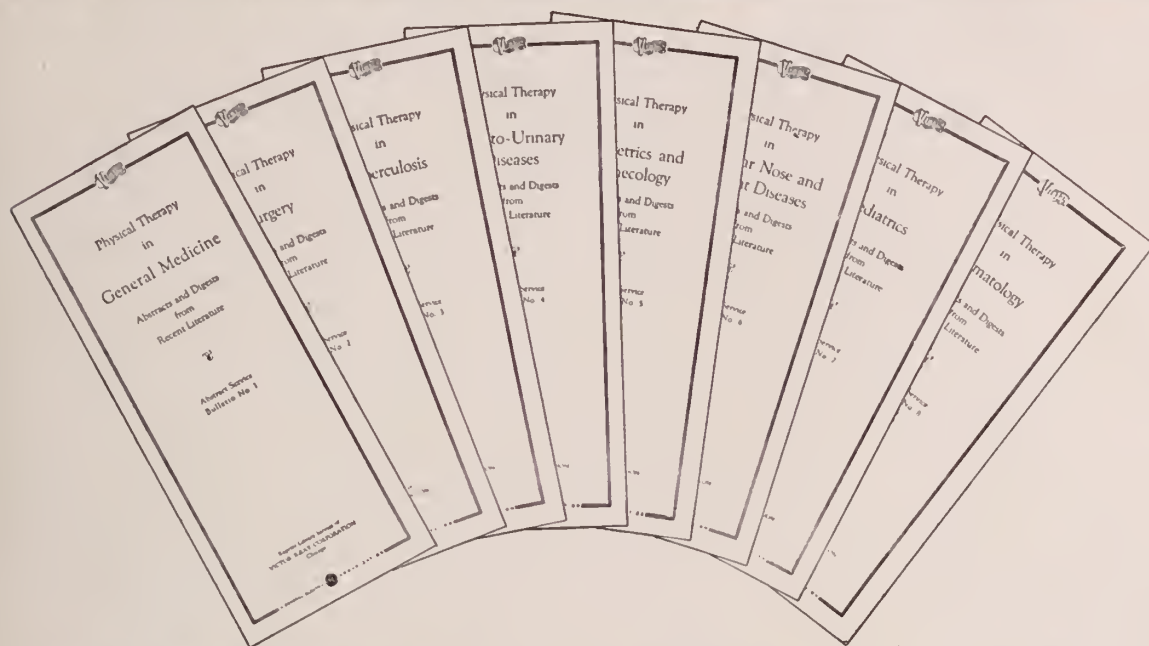 Victor
Physical Therapy
in
General Medicine
Abstracts and Digests
from
Recent Literature
Abstract Service
Bulletin No 1
VICTOR X-RAY CORPORATION
Chicago
Victor
ical Therapy
in
urgery
and Digests
om
Literature
ervice
No 2
Victor
sical Therapy
in
erculosis
s and Digests
rom
Literature
ervice
No. 3
Victor
ysical Therapy
in
to-Urinary
iseases
ts and Digests
from
Literature
ervice
No. 4
Victor
ysical Therapy
in
etrics and
ecology
s and Digests
from
Literature
ervice
No 5
Victor
sical Therapy
in
ar Nose and
t Diseases
s and Digests
rom
Literature
ervice
No 6
Victor
ysical Therapy
in
diatrics
ts and Digests
from
Literature
ervice
No 7
Victor
sical Therapy
in
matology
s and Digests
from
Literature
ervice
No 8